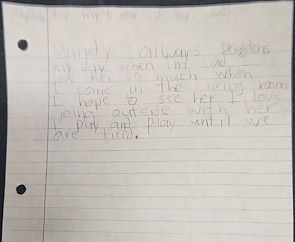 for my 6 year
Windy allways brightens
my day when im sad
love her so much when
I come in the living room
I hope to see her I love
going outside with her
I play and play until we
are tired.